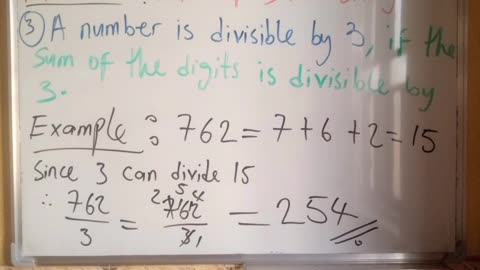 ③ A number is divisible by 3, if the
sum of the digits is divisible by
3.
Example: 762 = 7 + 6 + 2 = 15
Since 3 can divide 15
∴ 762/3 = 762/3 = 254
2 5 4
1